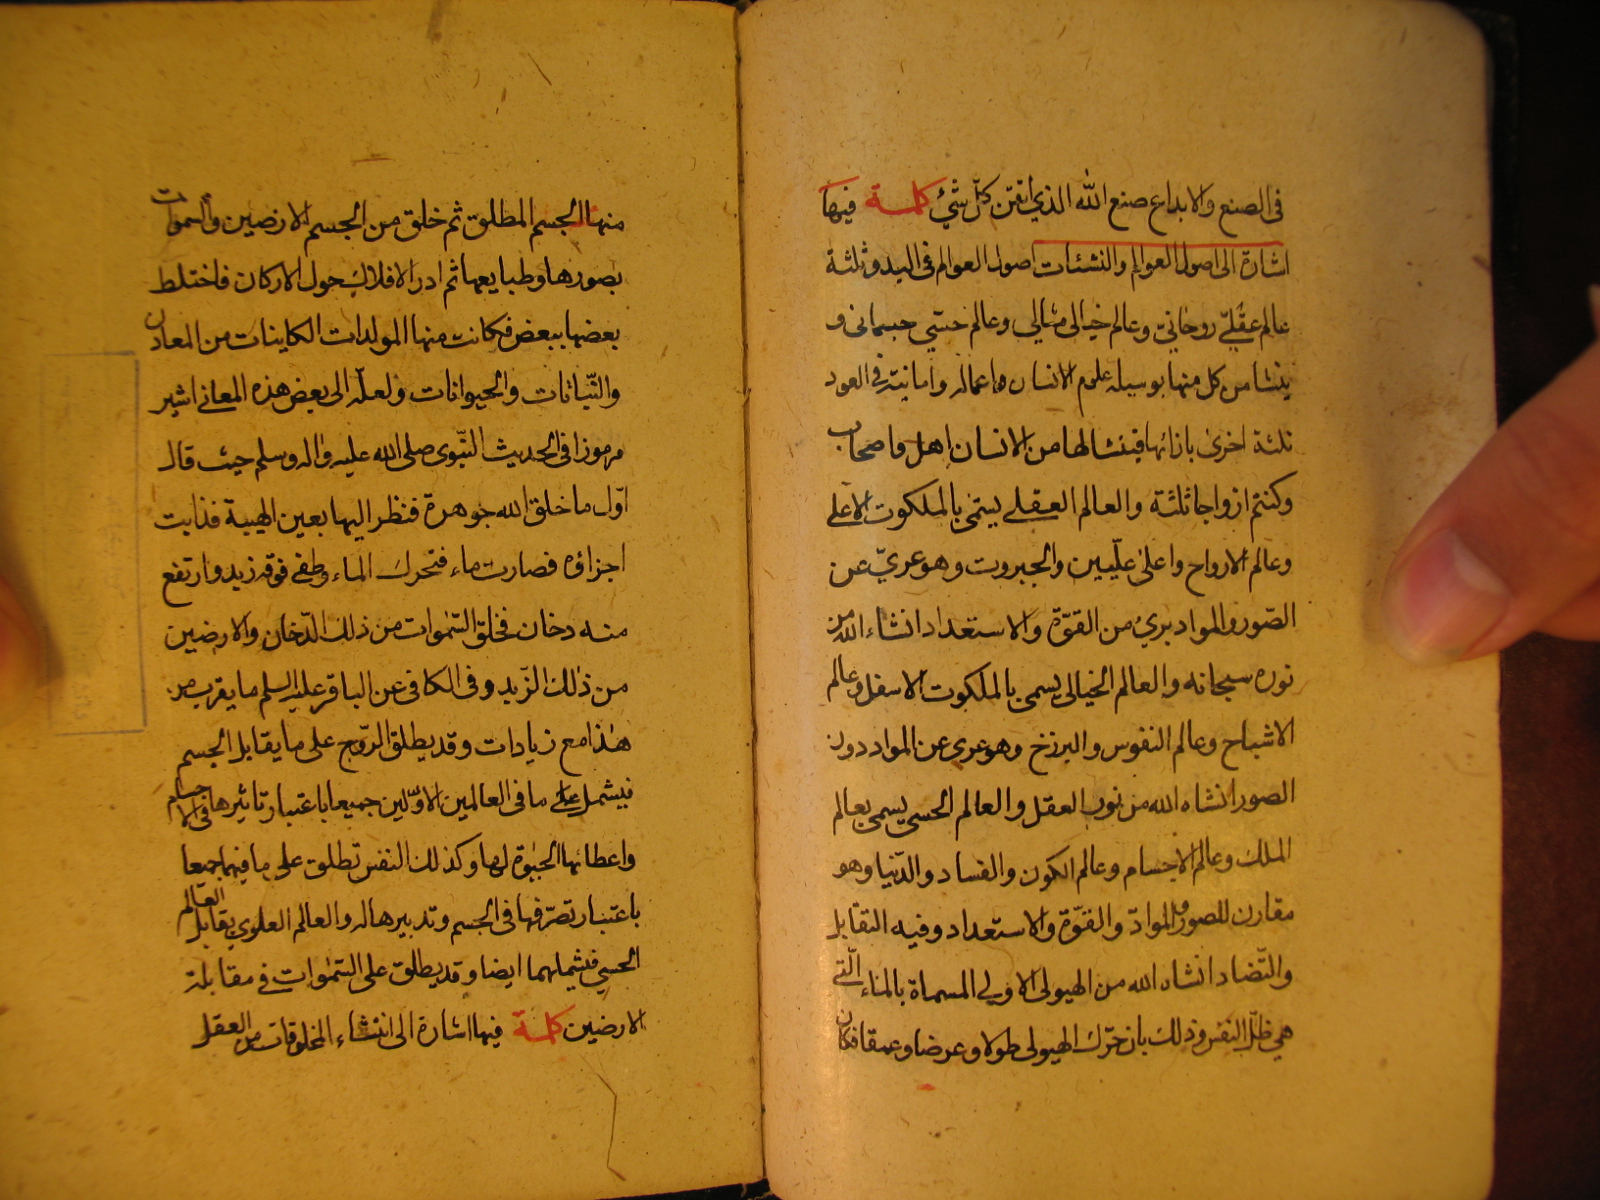 فى الصنع والابداع صنع الله الذي اتقن كلّ شئ كلمة فيها
اشارة الى اصول العوالم والنشئات اصول العوالم فى البدو ثلثة
عالم عقليّ روحانيّ وعالم خيالى مثالي وعالم حسّي جسمانى و
ينشا من كل منها بوسيلة علوم الانسان واعماله وامانيّه فى العود
ثلثة اخرى بازائها فينشا لها من الانسان اهل واصحاب
وكنتم ازواجا ثلثة والعالم العقلي يسمّى بالملكوت الاعلى
وعالم الارواح واعلى علّيين والجبروت وهو عريّ عن
الصّور والمواد بريّ من القوّة والاستعداد انشاء الله من
نوره سبحانه والعالم الخيالى يسمى بالملكوت الاسفل وعالم
الاشباح وعالم النفوس والبرزخ وهو عرى عن المواد دون
الصور انشاه الله من نور العقل والعالم الحسى يسمى بعالم
الملك وعالم الاجسام وعالم الكون والفساد والدّنيا وهو
مقارن للصور والموادّ والقوّة والاستعداد وفيه التقابل
والتّضاد انشاه الله من الهيولى الاولى المسماة بالماء الّتي
هى ظلّ النفس وذلك بان حرّك الهيولى طولا وعرضا وعمقا فكان
منها الجسم المطلق ثم خلق من الجسم الارضين والسموات
بصورها وطبايعها ثم ادر الافلاك حول الاركان فاختلط
بعضها ببعض فكانت منها المولدات الكاينات من المعادن
والنّباتات والحيوانات ولعلّه الى بعض هذه المعانى اشير
مرموزا فى الحديث النّبوى صلى الله عليه واله وسلم حيث قال
اوّل ما خلق الله جوهرة فنظر اليها بعين الهيبة فذابت
اجزاؤه فصارت ماء فتحرك الماء وطفى فوقه زبد وارتفع
منه دخان فخلق السّموات من ذلك الدّخان والارضين
من ذلك الزّبد وفى الكافى عن الباقر عليه السلم ما يقرب من
هذا مع زيادات وقد يطلق الرّوح على ما يقابل الجسم
فيشمل على ما فى العالمين الاوّلين جميعا باعتبار تاثيرها فى الاجسام
واعطائها الحيوة لها وكذلك النفس تطلق على ما فيهما جميعا
باعتبار تصرّفها فى الجسم وتدبيرها له والعالم العلوي يقابل العالم
الحسي فيشملهما ايضا وقد يطلق على السّموات فى مقابلة
الارضين كلمة فيها اشارة الى انتشاء المخلوقات من العقل